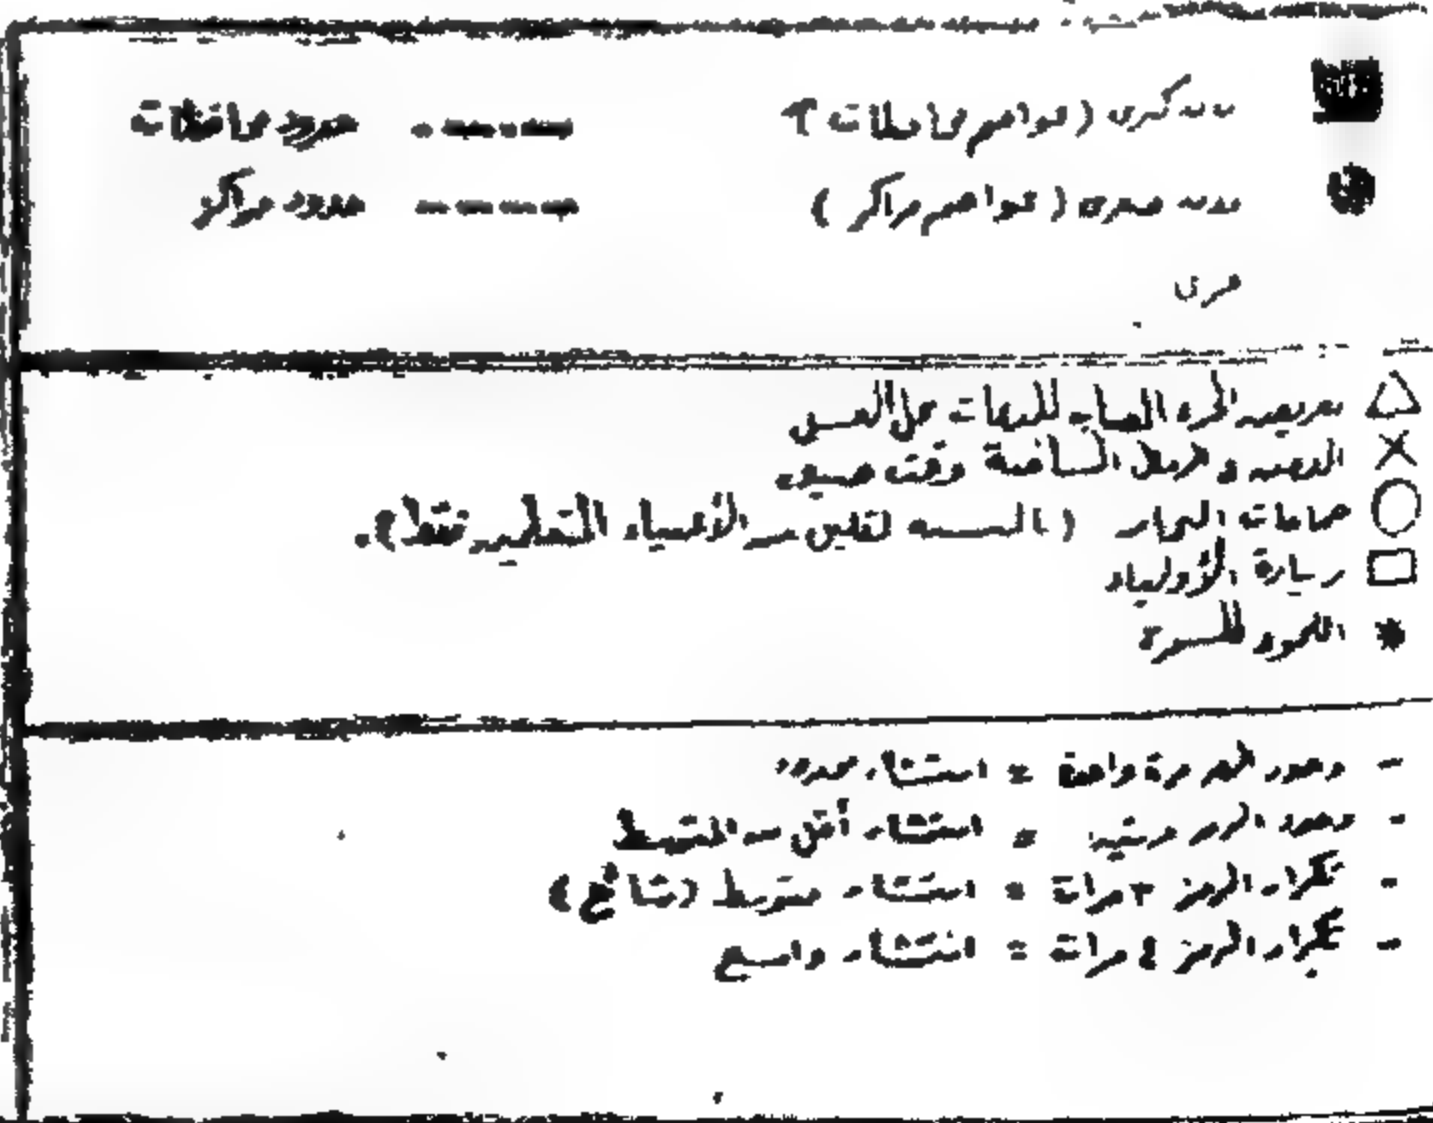 مدن كبرى (عواصم محافظات)
حدود محافظات
مدن صغرى (عواصم مراكز)
حدود مراكز
قرى
تعريض الجزء المصاب للدغات النحل
وقت
حمامات البخار ( بالنسبة لقليل من الأغنياء المتعلمين فقط).
زيارة الأولياء
اللجوء للسحرة
- وجود الرمز مرة واحدة = انتشار محدود
- وجود الرمز مرتين = انتشار أقل من المتوسط
- تكرار الرمز ٣ مرات = انتشار متوسط (شائع)
- تكرار الرمز ٤ مرات = انتشار واسع